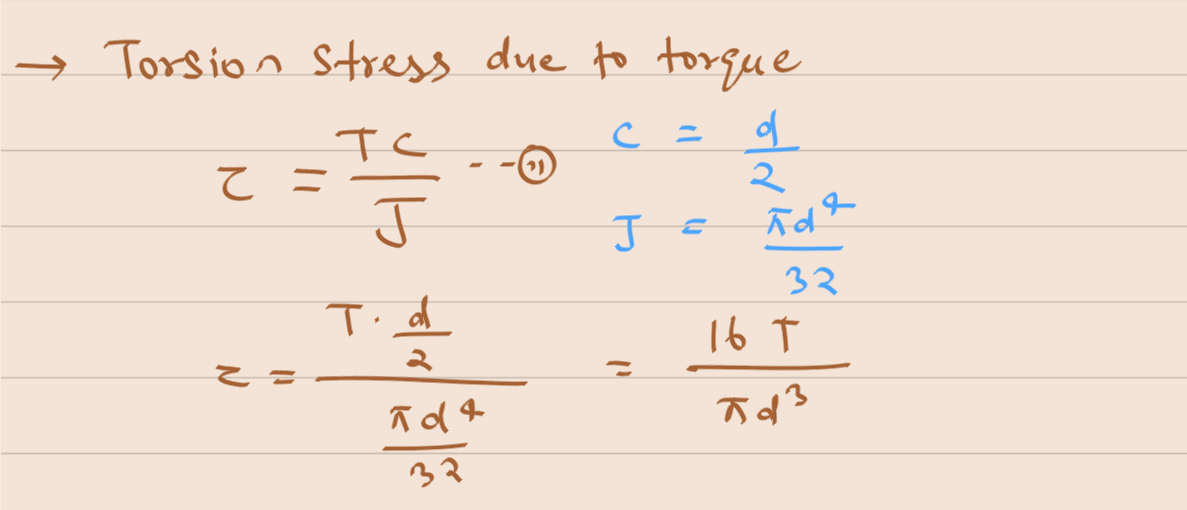 → Torsion stress due to torque
τ = TC/J --- (11) C = d/2
J = πd⁴/32
τ = (T · d/2)/(πd⁴/32) = 16T/πd³